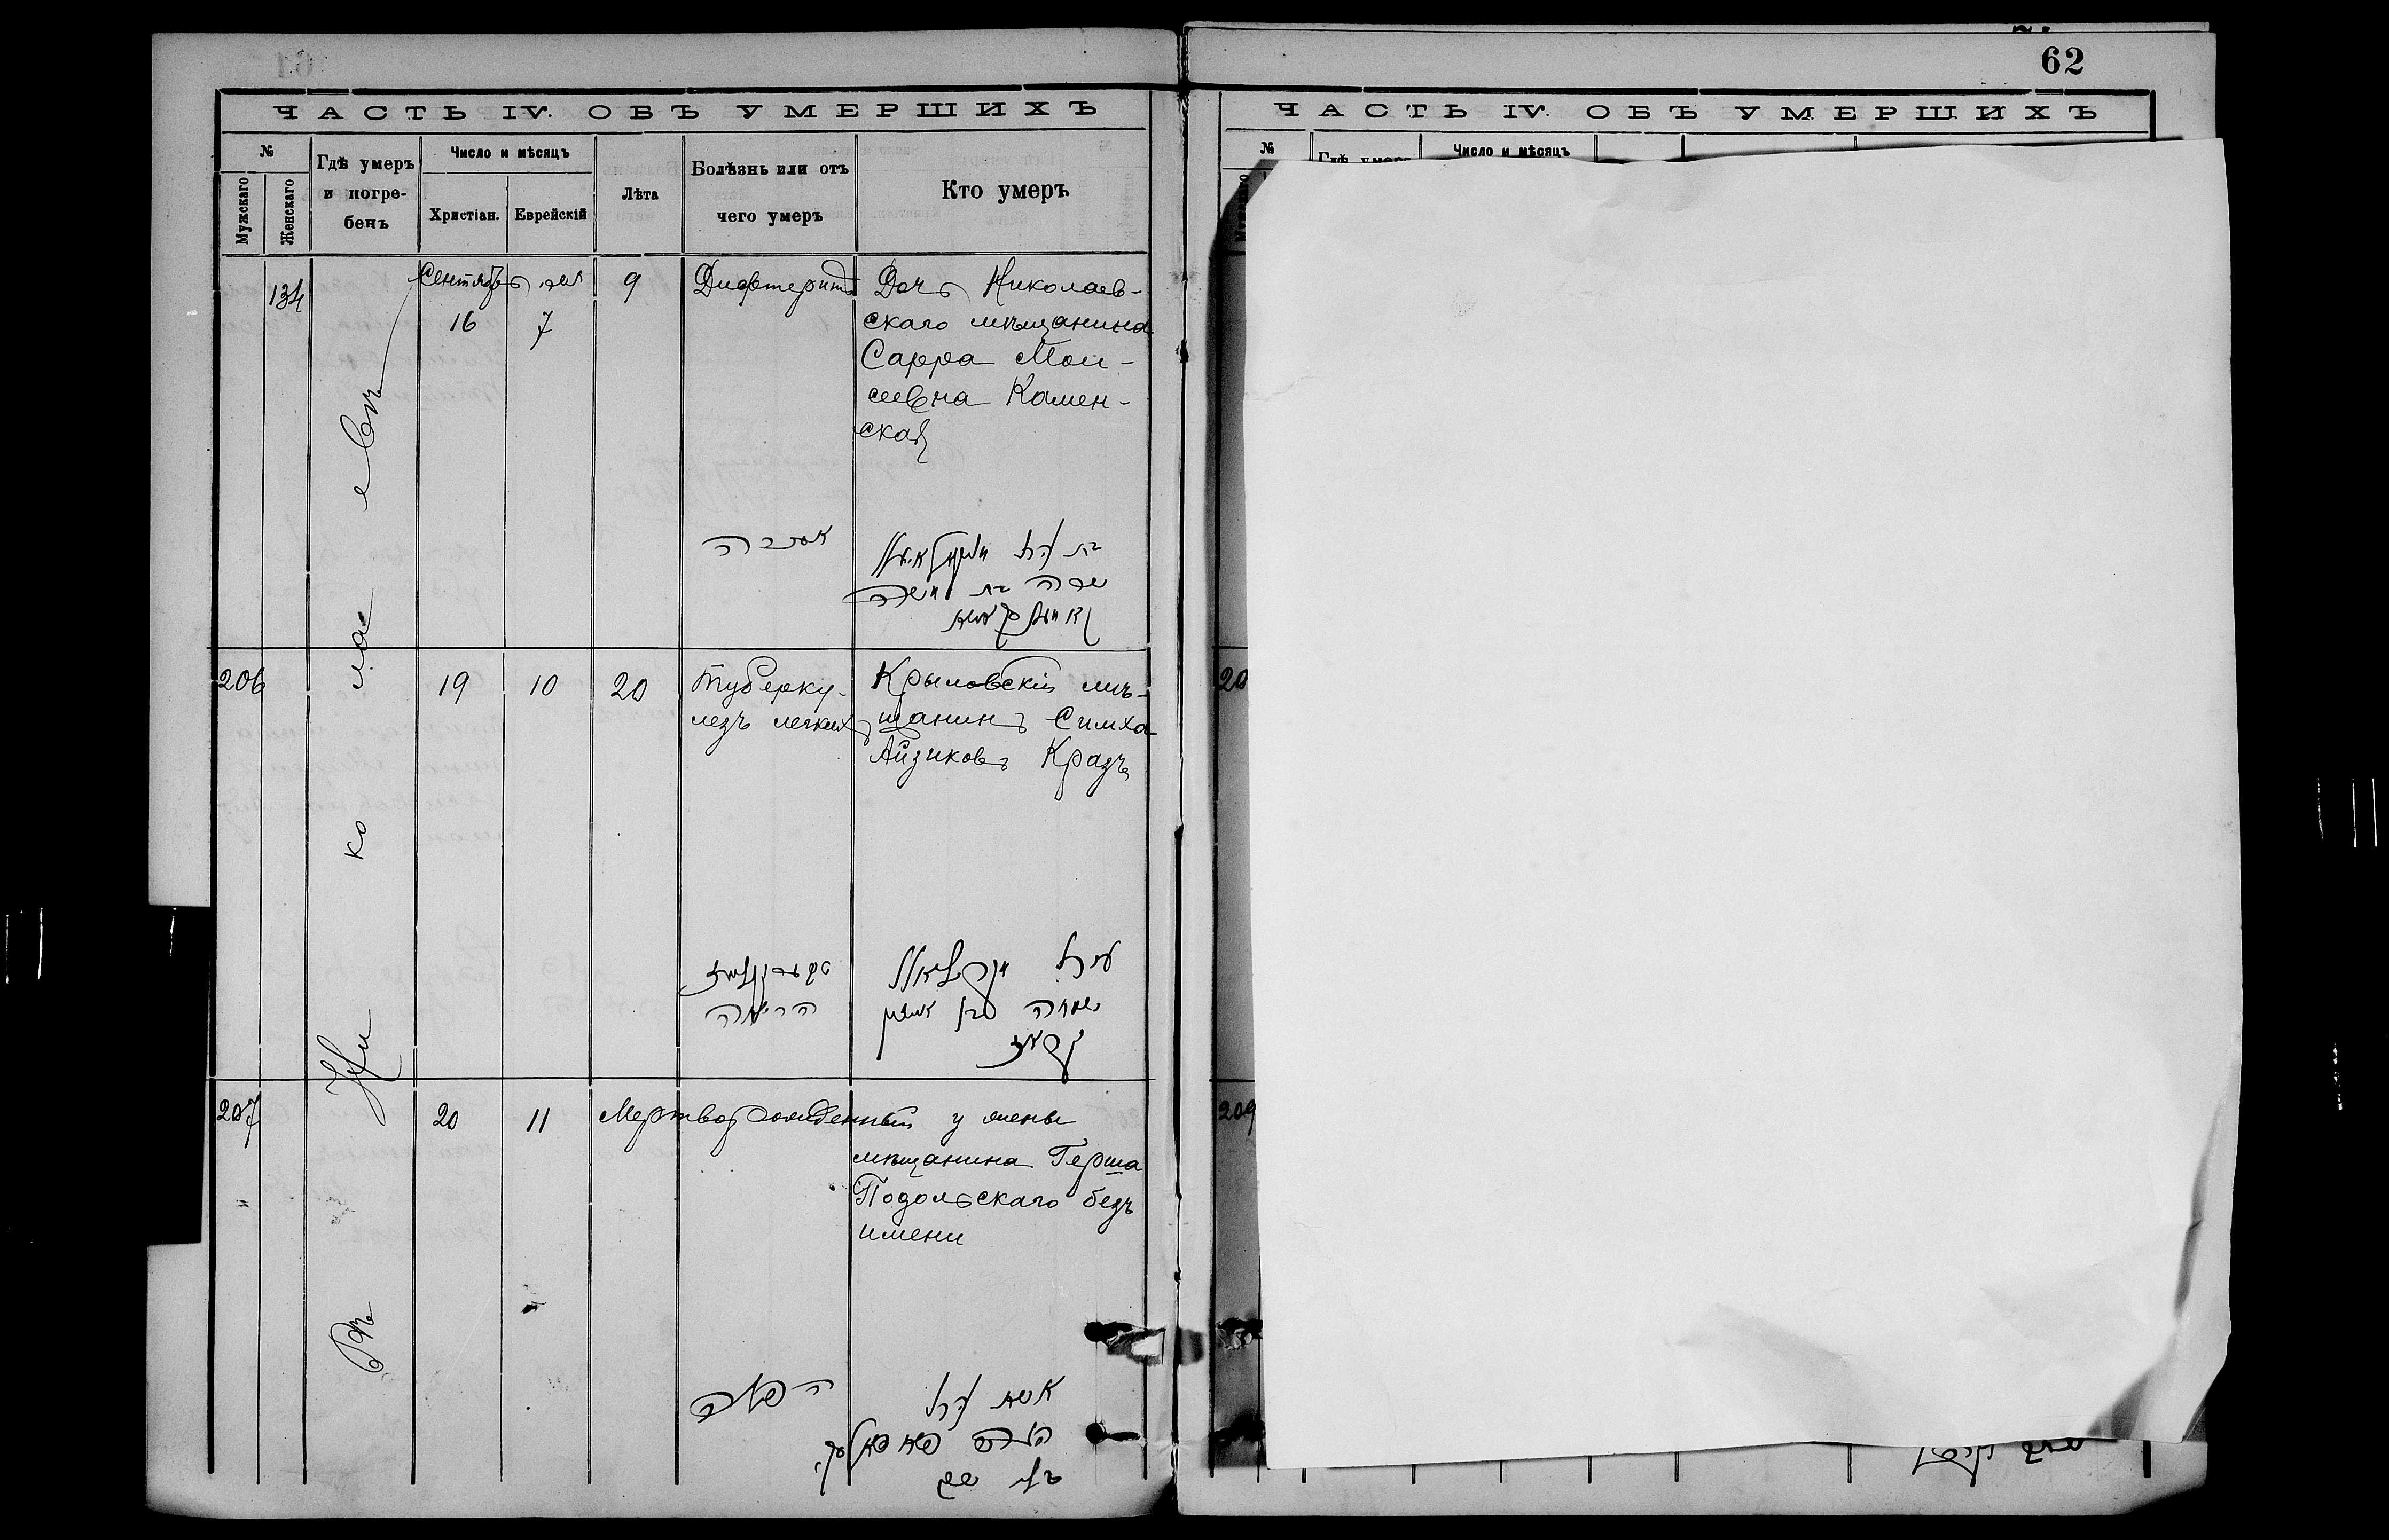 61
ЧАСТЬ IV. ОБЪ УМЕРШИХЪ
№
Мужскаго
Женскаго
Гдѣ умеръ
и погре-
бенъ
Число и мѣсяцъ
Христіан.
Еврейскій
Лѣта
Болѣзнь или отъ
чего умеръ
Кто умеръ
Въ Николаевѣ
134
Сентябрь
16
7
9
Дифтеритъ
Дочь Николаев-
скаго мѣщанина
Сарра Мои-
сеевна Камен-
ская
אסכרה
שרה בת משה
206
19
10
20
Туберку-
лезъ легкихъ
Крыловскій мѣ-
щанинъ Симха
Айзиковъ Кразъ
הריאה
שמחה בן אייזיק
207
20
11
Мертворожденный у жены
мѣщанина Герша
Подольскаго безъ
имени
בלי שם
62
ЧАСТЬ IV. ОБЪ УМЕРШИХЪ
№
Гдѣ умеръ
Число и мѣсяцъ
20
209